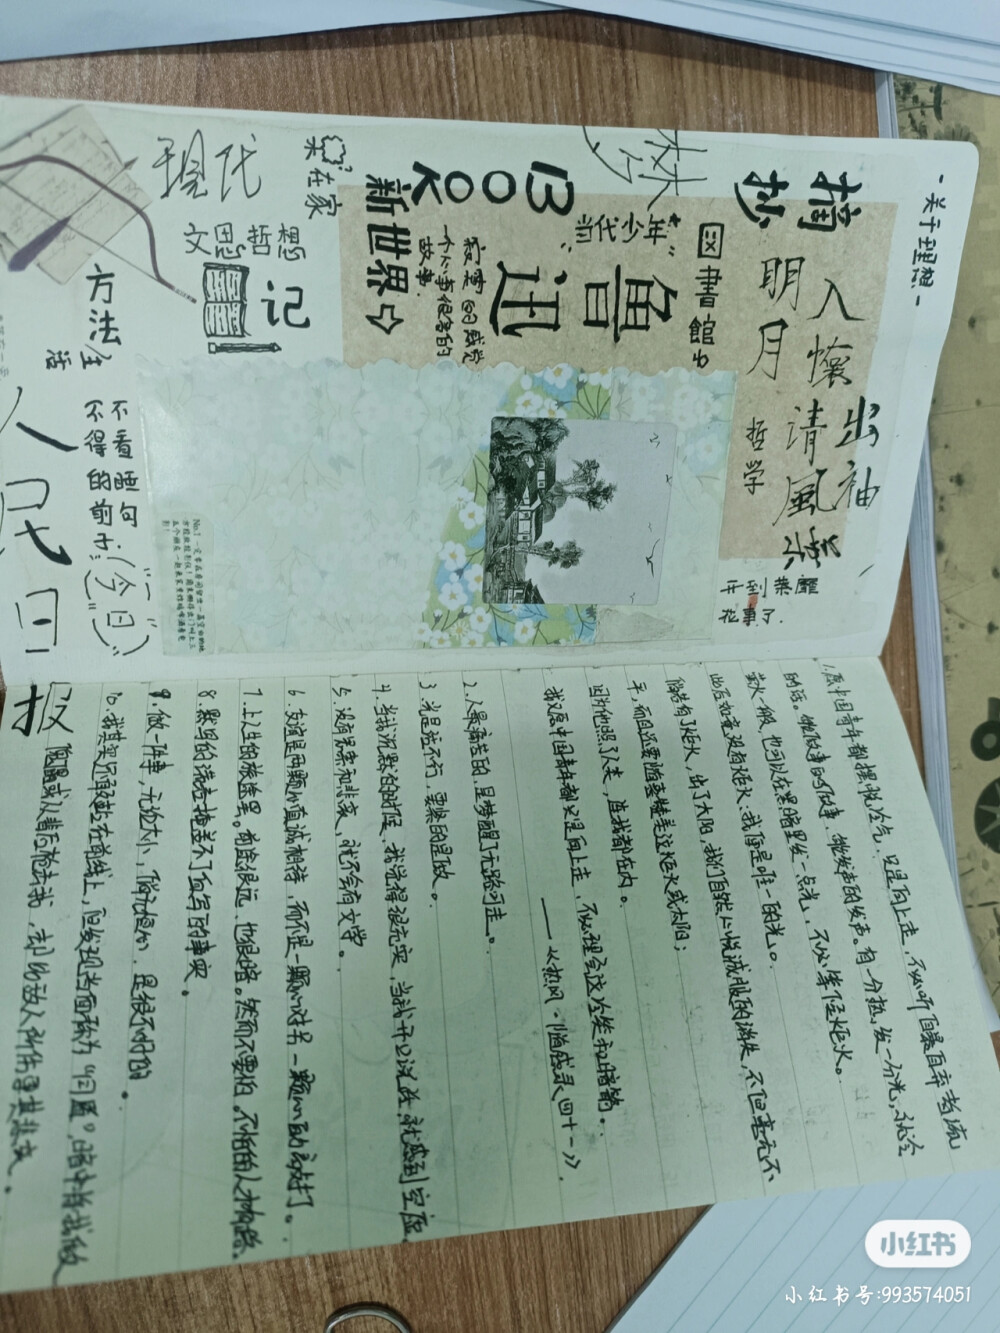 -关于理想-
摘抄
明月入懷
清風出袖
哲学
林少
BOOK
"年少
当代
鲁迅
図書館
寂寞的感觉
一个人事很容的
故事.
呆在家
新世界
现代
文思哲想
记
方法
生活
不看睡句
不得的前于:
(今日)
人民日报
1.愿中国青年都摆脱冷气,只是向上走,不必听自暴自弃者流
的话。能做事的做事,能发声的发声。有一分热,发一分光,就令
萤火一般,也可以在黑暗里发一点光,不必等候炬火。
此后如竟没有炬火:我便是唯一的光。
倘若有了炬火,出了太阳,我们自然心悦诚服的消失,不但毫无不
平,而且还要随喜赞美这炬火或太阳;
因为他照了人类,连我都在内。
我又愿中国青年都只是向上走,不必理会这冷笑和暗箭。
——《热风·随感录四十一》.
2.人最痛苦的是梦醒了无路可走。
3.光是说不行,要紧的是做。
4.当我沉默的时候,我觉得很充实,当我开口说话,就感到空虚。
5.没有悲哀和悲哀,就不会有文学。
6.友谊是两颗心真诚相待,而不是一颗心对另一颗心敲打。
7.上人生的旅途罢。前途很远,也很暗。然而不要怕。不怕的人才有路。
8.墨写的谎言掩盖不了血写的事实。
9.做一件事,无论大小,倘无恒心,是很不好的。
10.我其实还敢站在前线上,但发现当面称为"同道"的暗中将我做
傀儡或从背后枪击我,却比被敌人所伤更其悲哀。
小红书
小红书号:993574051